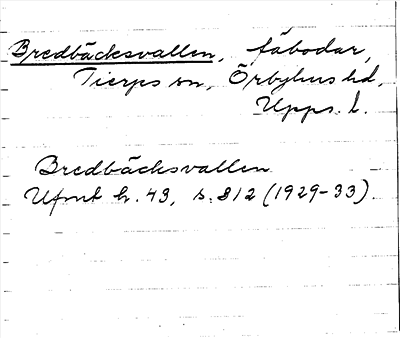 Bredbäcksvallen, fäbodar,
Tierps sn, Örbyhus hd,
Upps. l.
Bredbäcksvallen
Ufmt h. 43, s. 812 (1929-33).